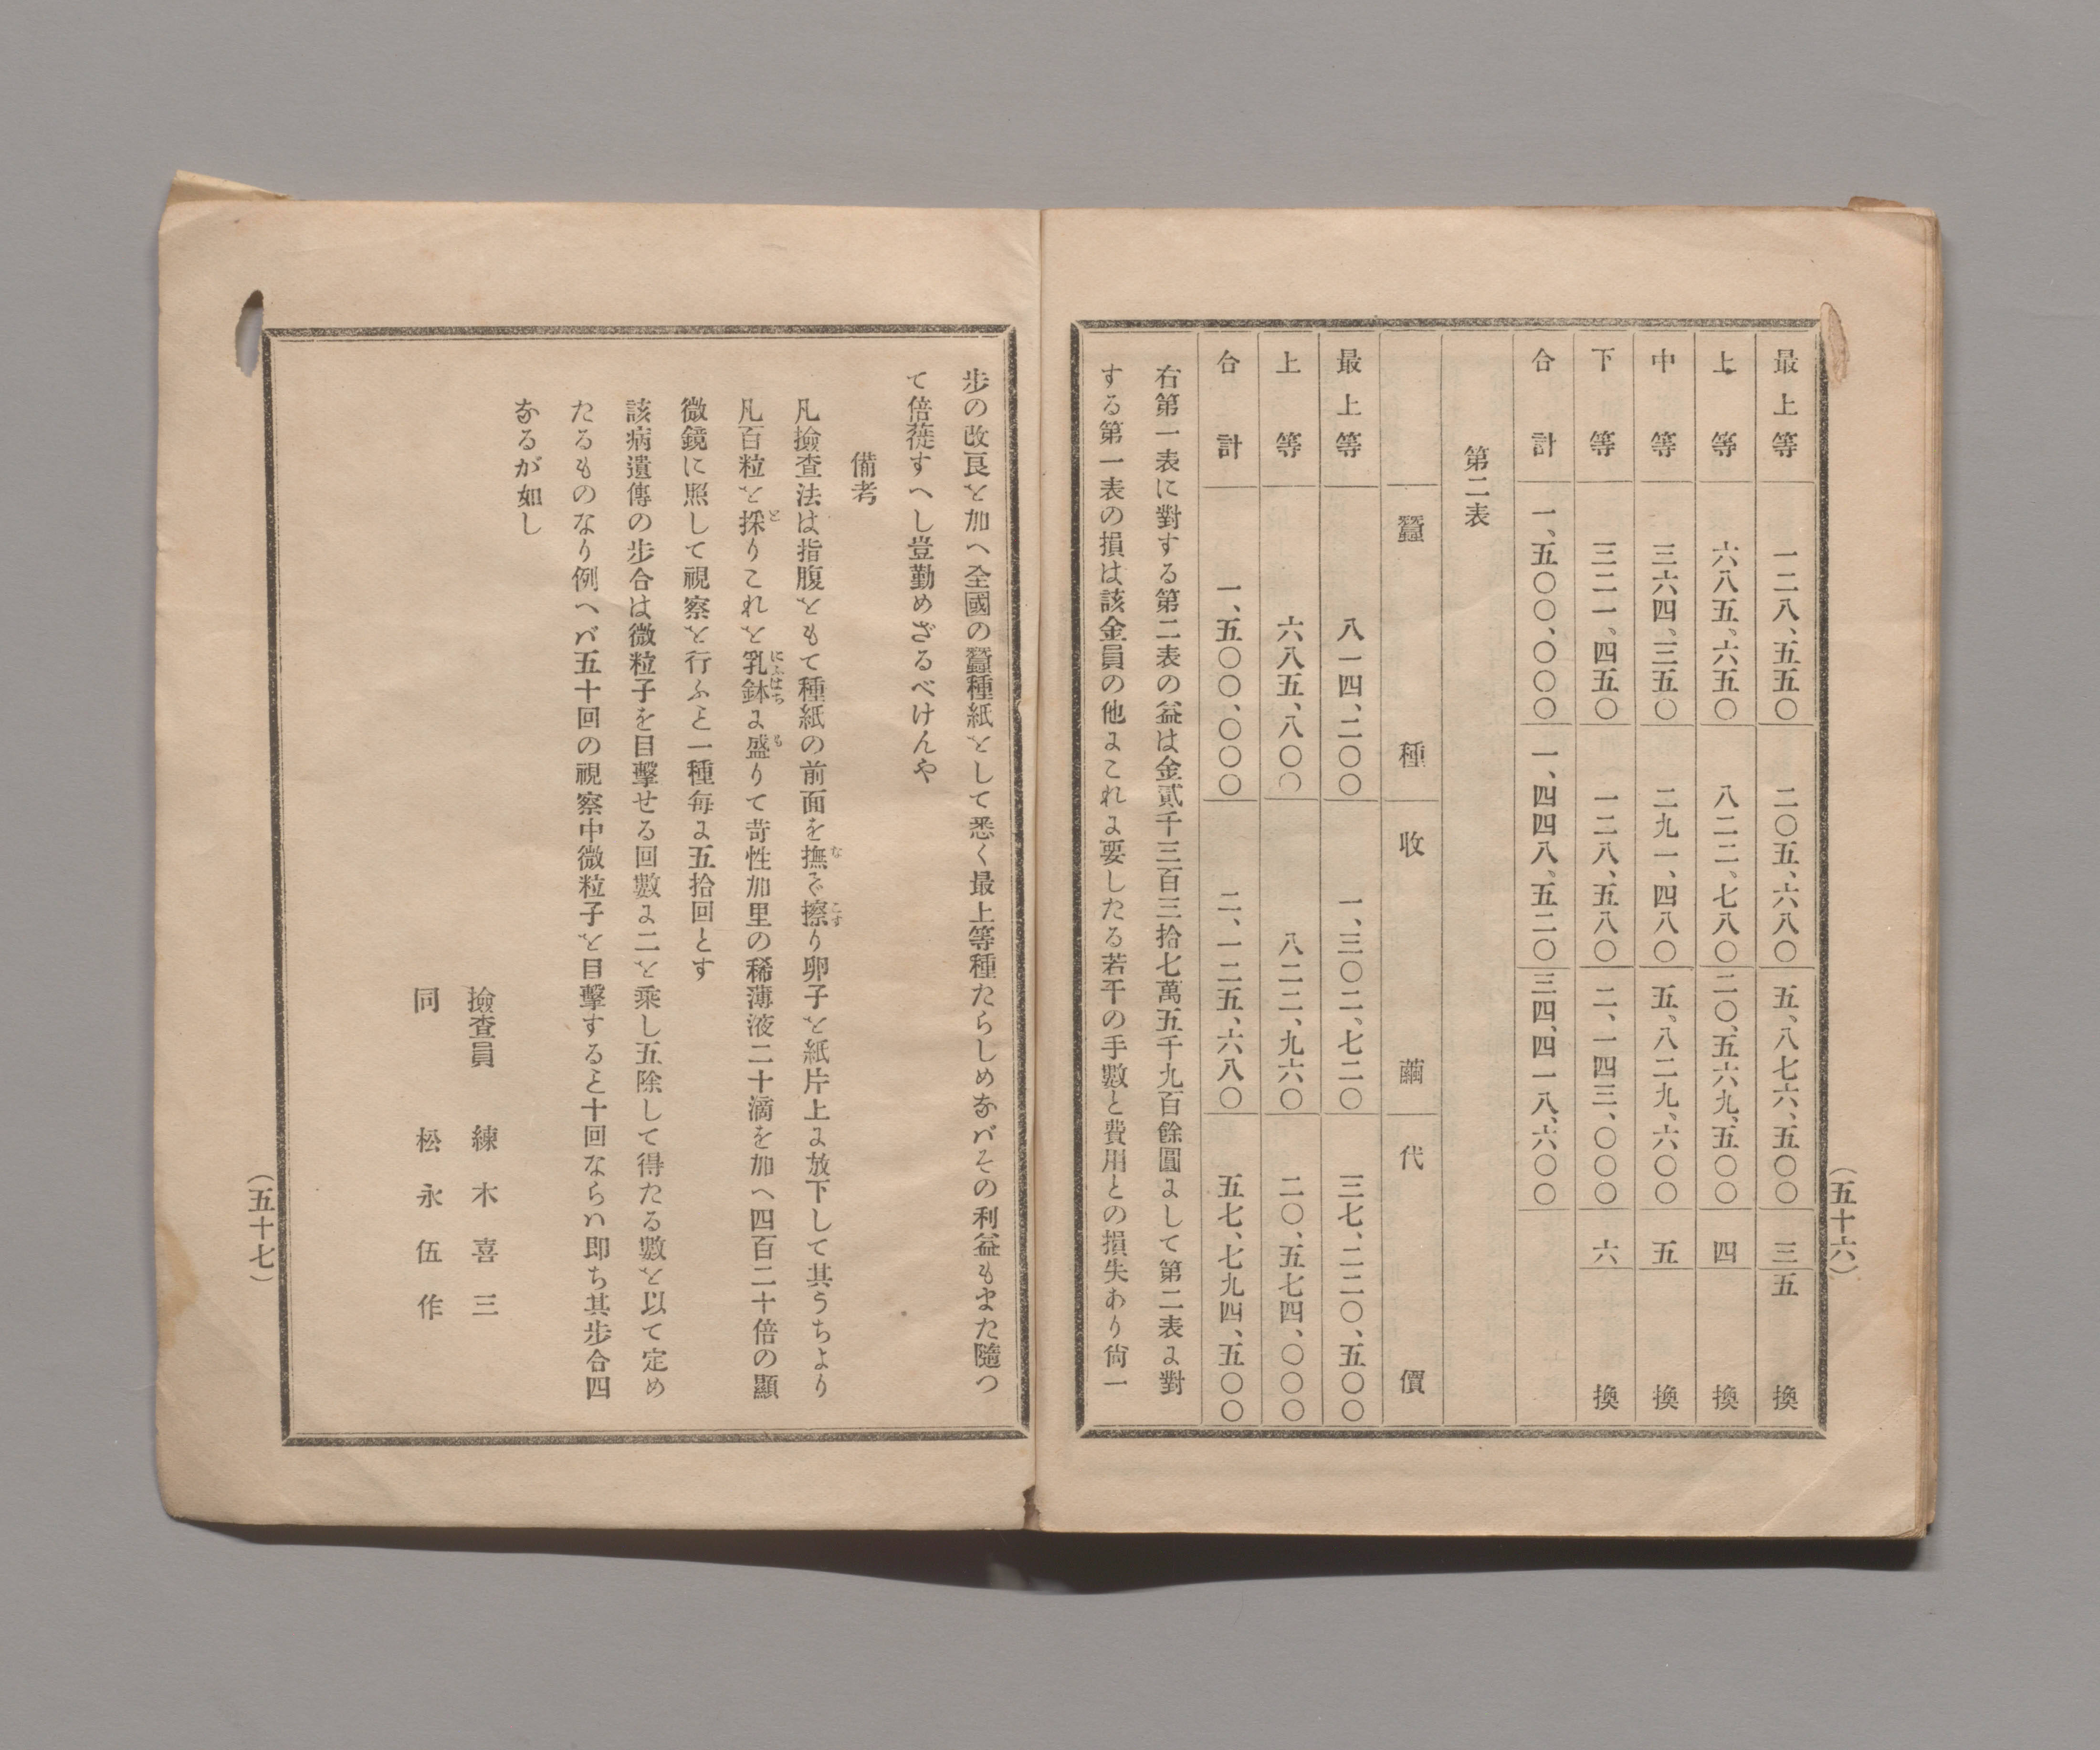 最上等 一二八、五五〇 二〇五、六八〇 五、八七六、五〇〇 三五 換
上等 六八五、六五〇 八二二、七八〇 二〇、五六九、五〇〇 四 換
中等 三六四、三五〇 二九一、四八〇 五、八二九、六〇〇 五 換
下等 三二一、四五〇 一二八、五八〇 二、一四三、〇〇〇 六 換
合計 一、五〇〇、〇〇〇 一、四四八、五二〇 三四、四一八、六〇〇
第二表
蠶種 收繭 代價
最上等 八一四、二〇〇 一、三〇二、七二〇 三七、二二〇、五〇〇
上等 六八五、八〇〇 八二二、九六〇 二〇、五七四、〇〇〇
合計 一、五〇〇、〇〇〇 二、一二五、六八〇 五七、七九四、五〇〇
右第一表に對する第二表の益は金貳千三百三拾七萬五千九百餘圓よして第二表よ對
する第一表の損は該金員の他よこれよ要したる若干の手數と費用との損失あり尙一
(五十六)
歩の改良を加へ全國の蠶種紙をして悉く最上等種たらしめなバその利益もまた隨つ
て倍蓰すへし豈勤めざるべけんや
備考
凡撿查法は指腹をもて種紙の前面を撫で擦り卵子を紙片上よ放下して其うちより
凡百粒を採りこれを乳鉢よ盛りて苛性加里の稀薄液二十滴を加へ四百二十倍の顯
微鏡に照して視察を行ふこと一種每よ五拾回とす
該病遺傳の歩合は微粒子を目擊せる回數よ二を乘し五除して得たる數を以て定め
たるものなり例へバ五十回の視察中微粒子を目擊すること十回ならハ即ち其歩合四
なるが如し
撿查員 練木喜三
同 松永伍作
(五十七)